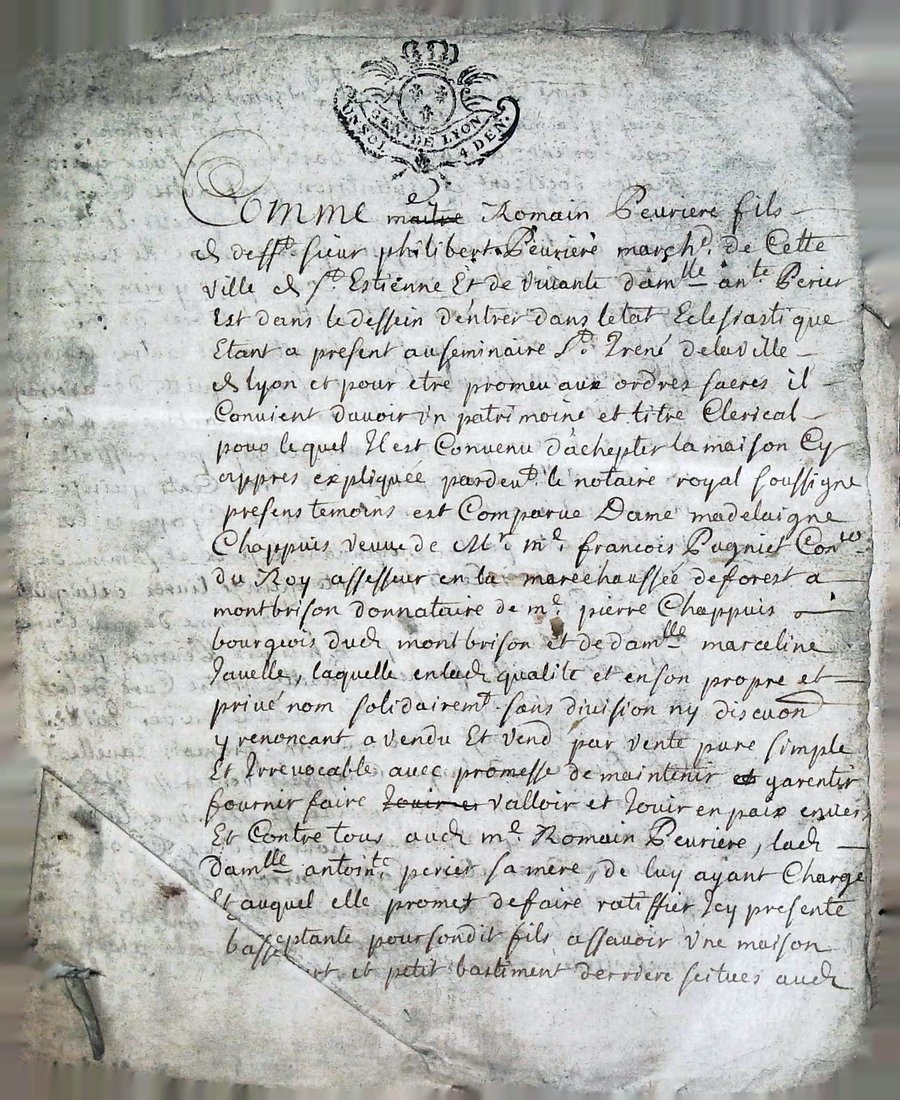 GEN. DE LYON
UN SOL 4 DEN.
Comme maitre Romain Peuriere fils
de deff.t sieur philibert Peurieré march.d de Cette
ville de s.t Estienne Et de viuante dam.lle an.te Perier
Est dans le dessein dentrer dans letat Eclesiastique
Etant a present au seminaire s.t Irené de la ville
de lyon et pour etre promeu aux ordres sacres il
Conuient dauoir un patrimoine et titre Clerical
pour lequel Il est Conuenu d'achepter la maison Cy
appres expliquée pardeu.t le notaire royal soussigne
presens temoins est Comparue Dame madelaigne
Chappuis veuue de M.r m.e francois Pugniet Con.er
du Roy assesseur en la maréchaussée de forest a
montbrison donnataire de m.e pierre Chappuis
bourgeois dud montbrison et de dam.lle marceline
Jauelle, laquelle enlad qualité et en son propre et
priué nom solidairem.t sans diuision ny discuon
y renoncant a vendu Et vend par vente pure simple
Et Irreuocable auec promesse de maintenir et garentir
fournir faire Jouir et valloir et Jouir en paix enuers
Et Contre tous aud m.e Romain Peuriere, lad
Dam.lle antoin.te perier sa mere, de luy ayant Charge
Et auquel elle promet de faire ratiffier Icy presente
acceptante pour sondit fils assauoir une maison
et petit bastiment derriere scitues aud